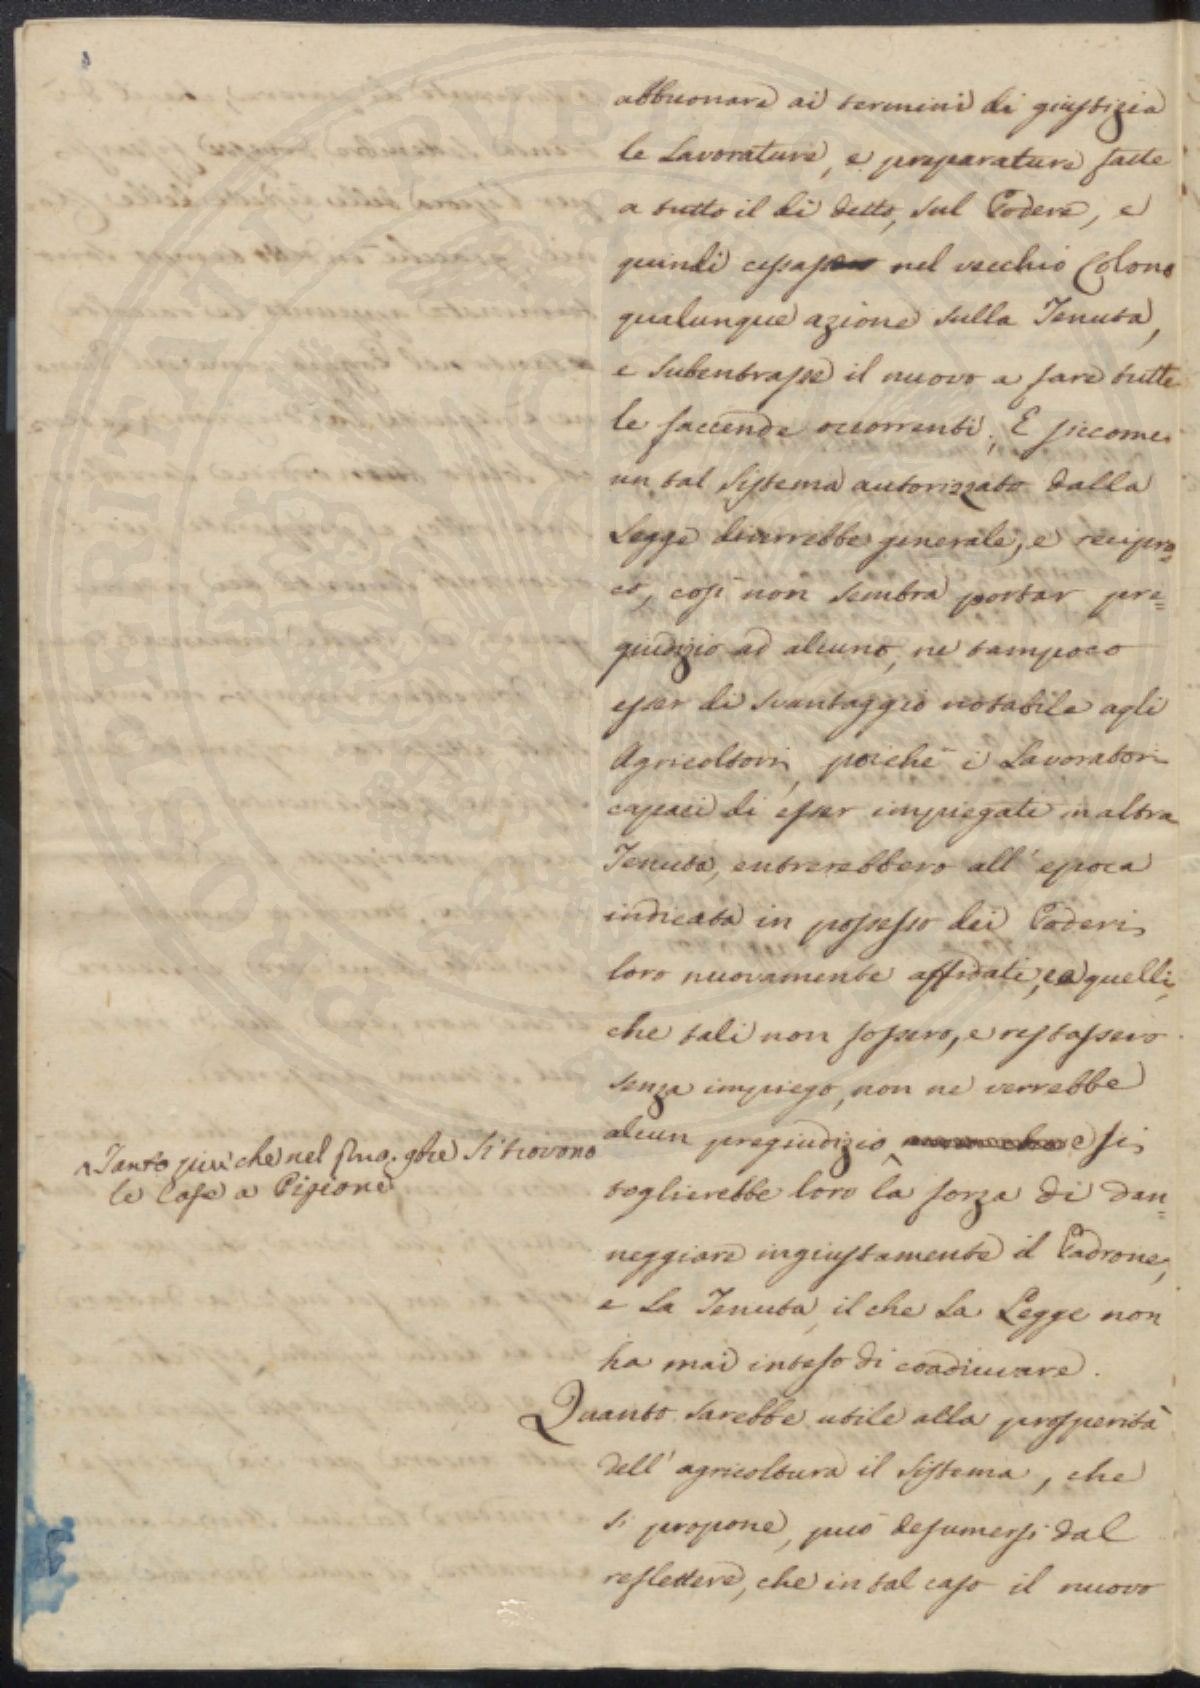 abbuonare ai termini di giustizia
le Lavorature, e preparature fatte
a tutto il di detto, sul Podere, e
quindi cessasse nel vecchio Colono
qualunque azione sulla Tenuta,
e subentrasse il nuovo a fare tutte
le faccende occorrenti; E siccome
un tal Sistema autorizzato dalla
Legge diverrebbe generale, e recipro=
co, così non sembra portar pre=
giudizio ad alcuno, ne tampoco
esser di svantaggio notabile agli
Agricoltori, poichè i Lavoratori
capaci di esser impiegati in altra
Tenuta, entrerebbero all' epoca
indicata in possesso dei Poderi
loro nuovamente affidati, e a quelli,
che tali non fossero, e restassero
senza impiego, non ne verrebbe
alcun pregiudizio e si
toglierebbe loro la forza di dan=
neggiare ingiustamente il Padrone,
e La Tenuta, il che La Legge non
ha mai inteso di coadiuvare.
Quanto sarebbe utile alla prosperità
dell' agricoltura il Sistema, che
si propone, può desumersi dal
reflettere, che in tal caso il nuovo
Tanto più che nel si trovono
le Case a Pigione